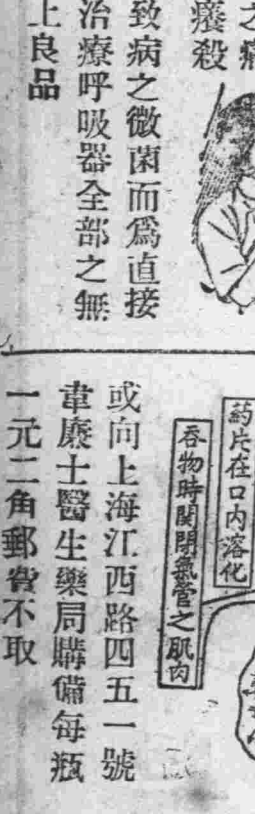 癢殺
致病之微菌而爲直接
治療呼吸器全部之無
上良品
葯片在口內溶化
吞物時関閉氣管之肌肉
或向上海江西路四五一號
韋廉士醫生藥局購備每瓶
一元二角郵費不取